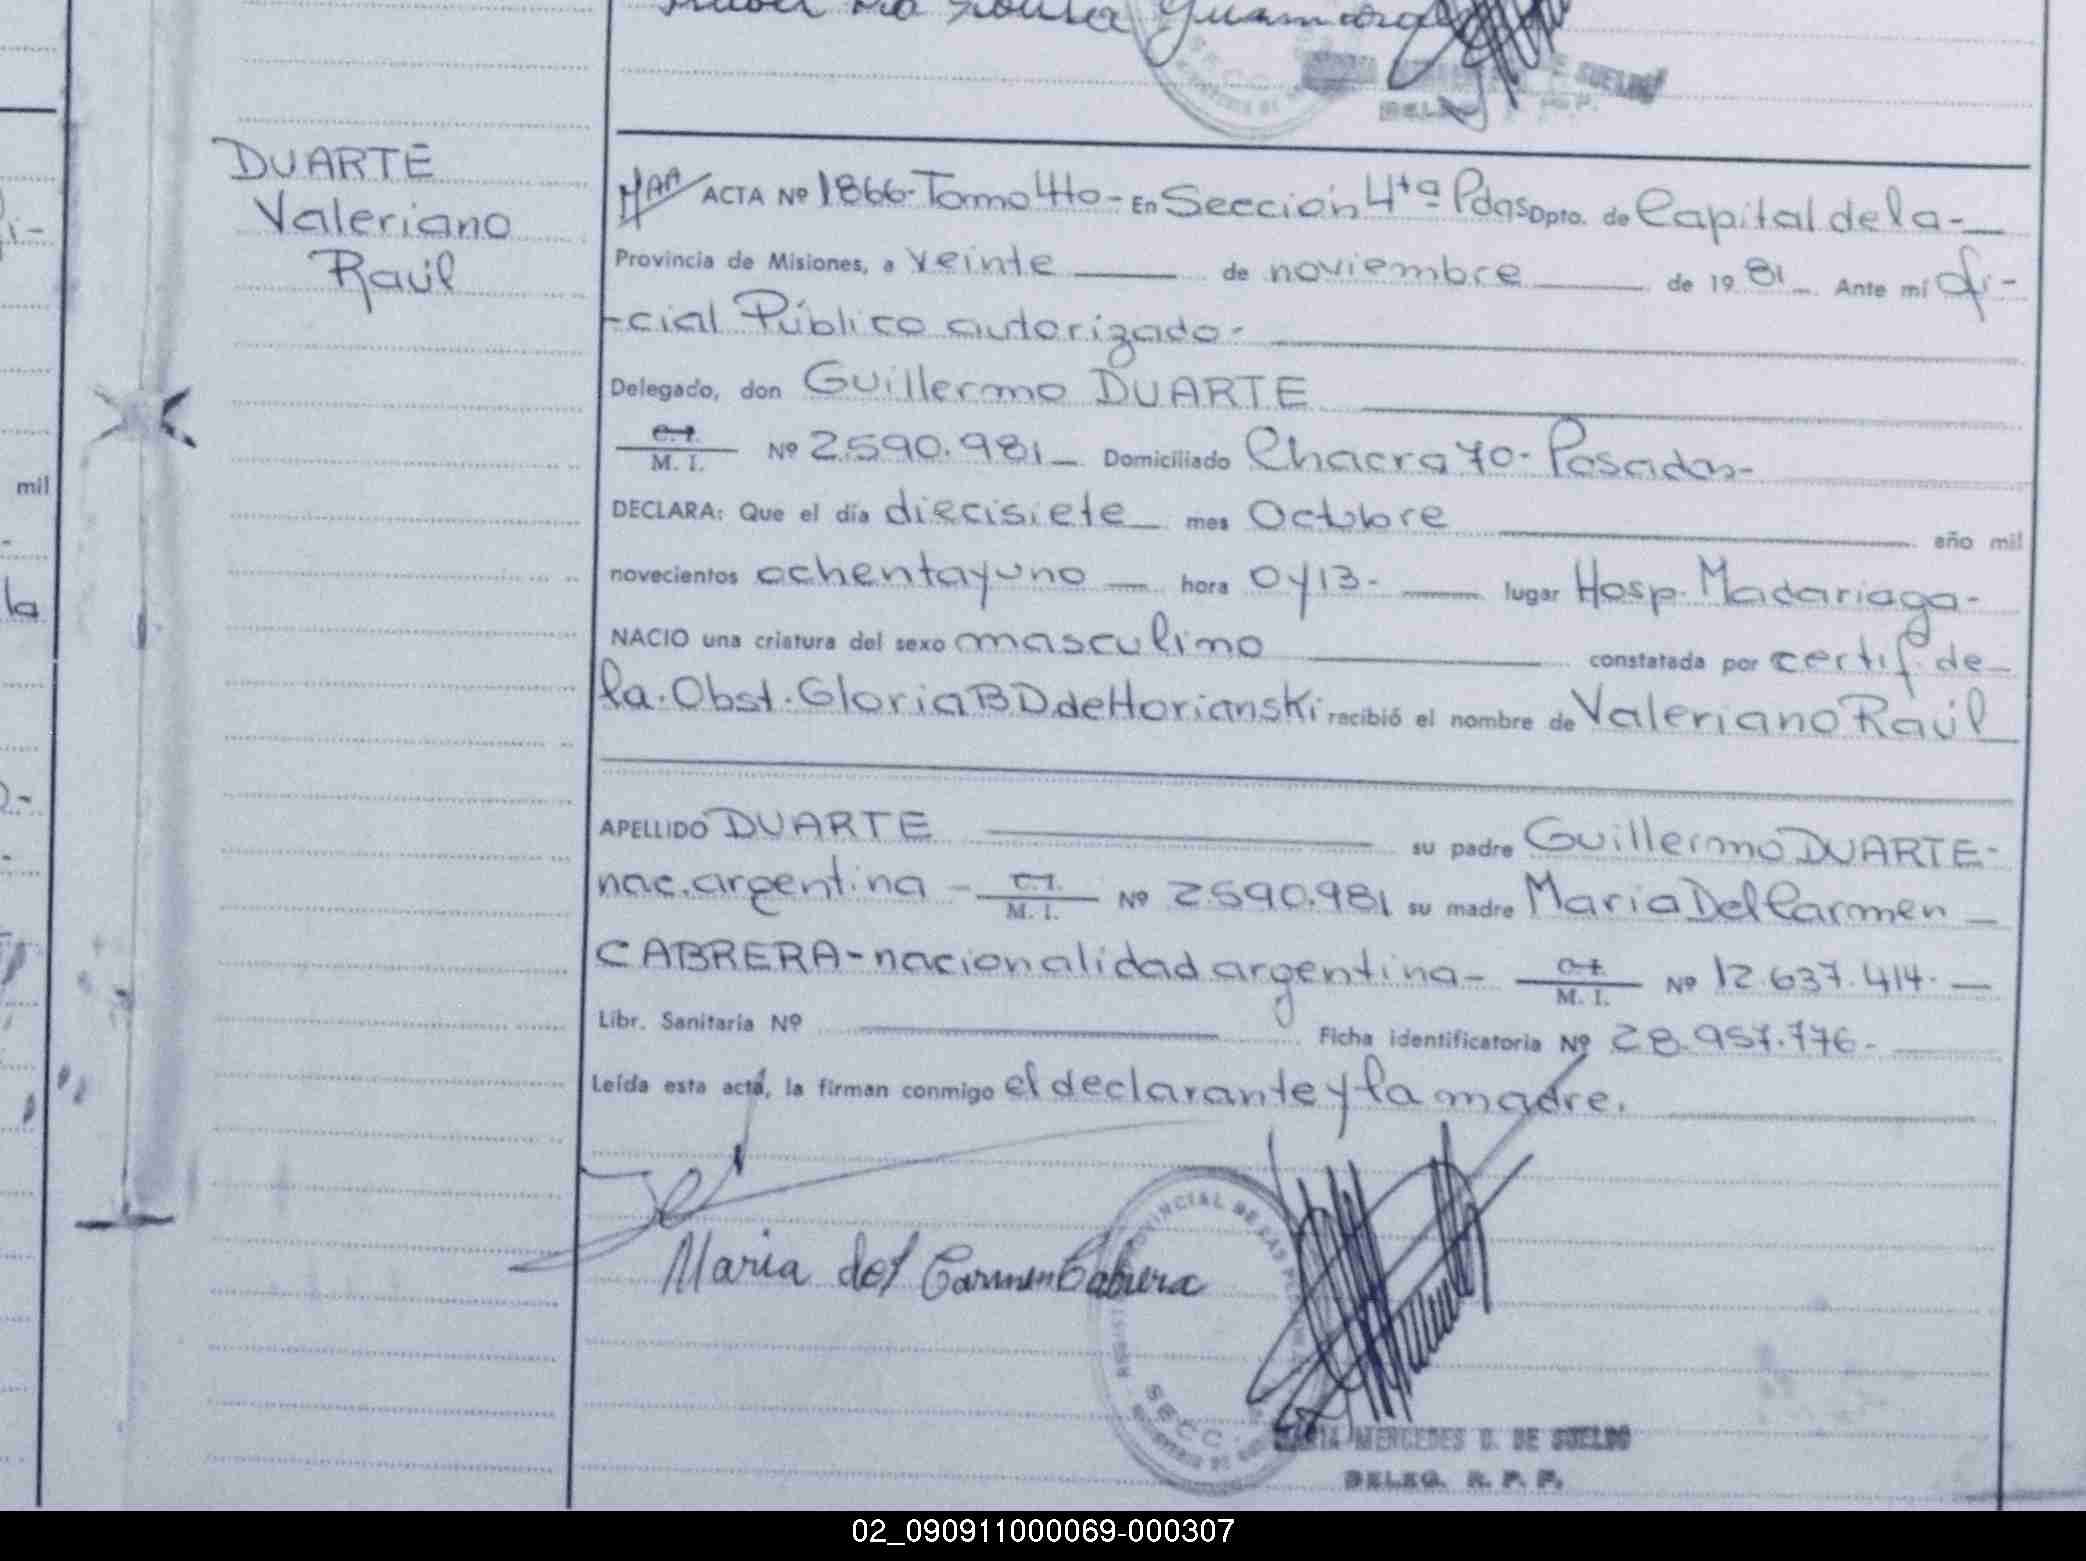 DUARTE
Valeriano
Raúl
mil
la
ACTA Nº 1866-Tomo 4to- En Sección 4ta Pdas Dpto. de Capital de la-
Provincia de Misiones, a veinte de noviembre de 1981 Ante mí Ofi-
-cial Público autorizado-
Delegado, don Guillermo DUARTE
C.I.
M. I. Nº 2.590.981 Domiciliado Chacra 70- Posadas-
DECLARA: Que el día diecisiete mes Octubre año mil
novecientos ochenta y uno hora 0 y 13- lugar Hosp. Madariaga-
NACIO una criatura del sexo masculino constatada por certif. de
la. Obst. Gloria B D. de Horianski recibió el nombre de Valeriano Raúl
APELLIDO DUARTE su padre Guillermo DUARTE-
nac. argentina - C.I.
M. I. Nº 2.590.981 su madre Maria Del Carmen
CABRERA- nacionalidad argentina- C.I.
M. I. Nº 12.637.414-
Libr. Sanitaria Nº Ficha identificatoria Nº 28.957.776-
Leída esta acta, la firman conmigo el declarante y la madre.
Maria del Carmen Cabrera
PROVINCIAL DE LAS PERSONAS
SECC.
MARIA MERCEDES D. DE SUELDO
DELEG. R. P. P.
02_090911000069-000307